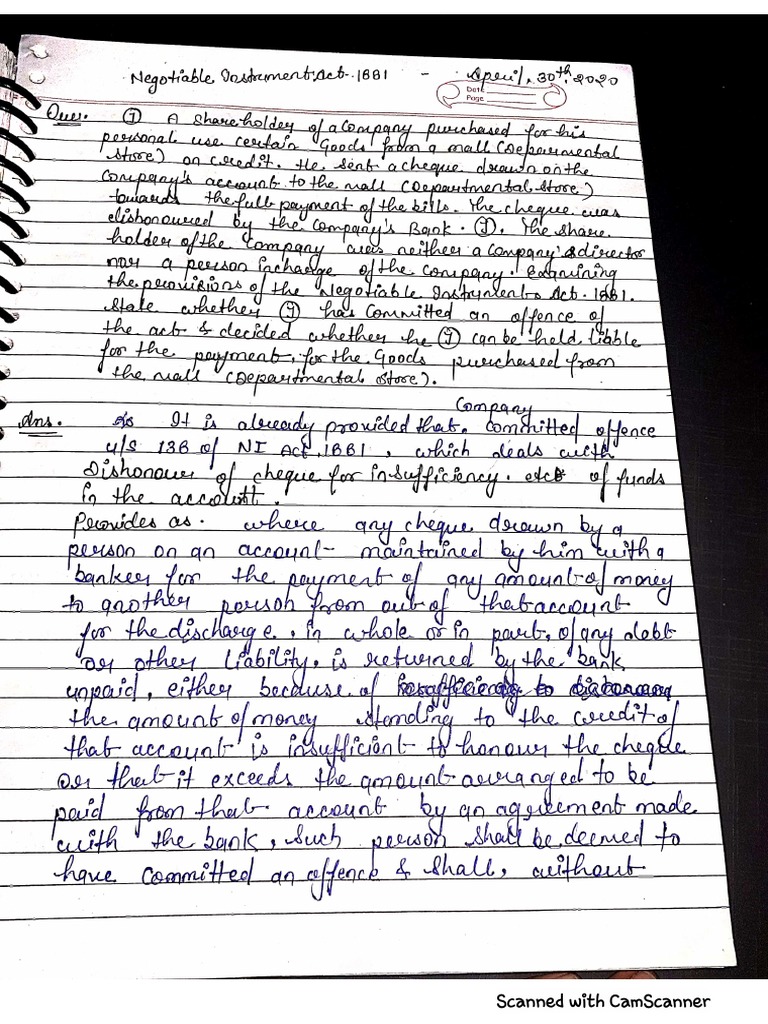 Negotiable Instrument Act - 1881 - April, 30th, 2020
Date
Page
Que. (J) A shareholder of a Company purchased for his
personal use certain Goods from a mall (Deparmental
store) on credit. He sent a cheque drawn on the
Company's account to the mall (Departmental store)
towards the full payment of the bills. The cheque was
dishonoured by the Company's Bank. (J). The share
holder of the Company was neither a Company's director
nor a person incharge of the Company. Examining
the provisions of the Negotiable Instruments Act. 1881.
State whether (J) has committed an offence of
the act & decided whether he (J) can be held liable
for the payment, for the Goods purchased from
the mall (Departmental store).
Company
Ans. It is already provided that, committed offence
u/s 138 of NI Act, 1881, which deals with
Dishonour of cheque for insufficiency. etc of funds
in the account.
Provides as. where any cheque drawn by a
person on an account maintained by him with a
banker for the payment of any amount of money
to another person from out of that account
for the discharge, in whole or in part, of any debt
or other liability, is returned by the bank
unpaid, either because of
the amount of money standing to the credit of
that account is insufficient to honour the cheque
or that it exceeds the amount arranged to be
paid from that account by an agreement made
with the bank, such person shall be deemed to
have committed an offence & shall, without
Scanned with CamScanner